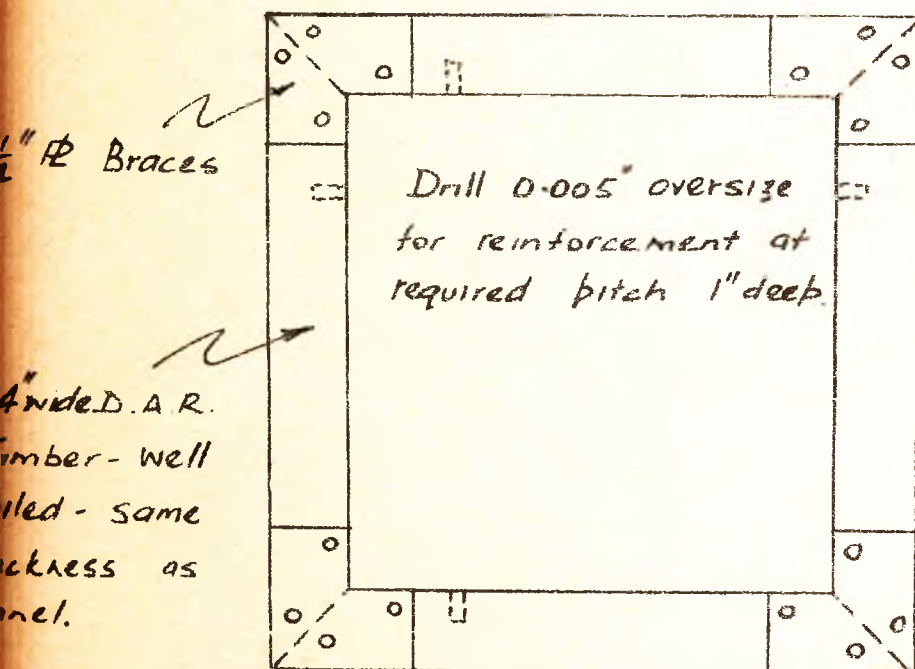 ½" PL Braces
Drill 0.005" oversize
for reinforcement at
required pitch 1" deep.
4" wide D.A.R.
Timber - Well
oiled - same
thickness as
panel.